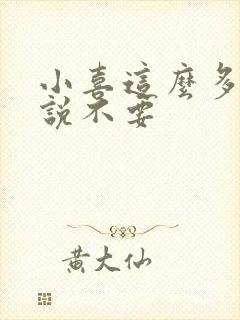 小喜這麼多
說不要
黃大仙